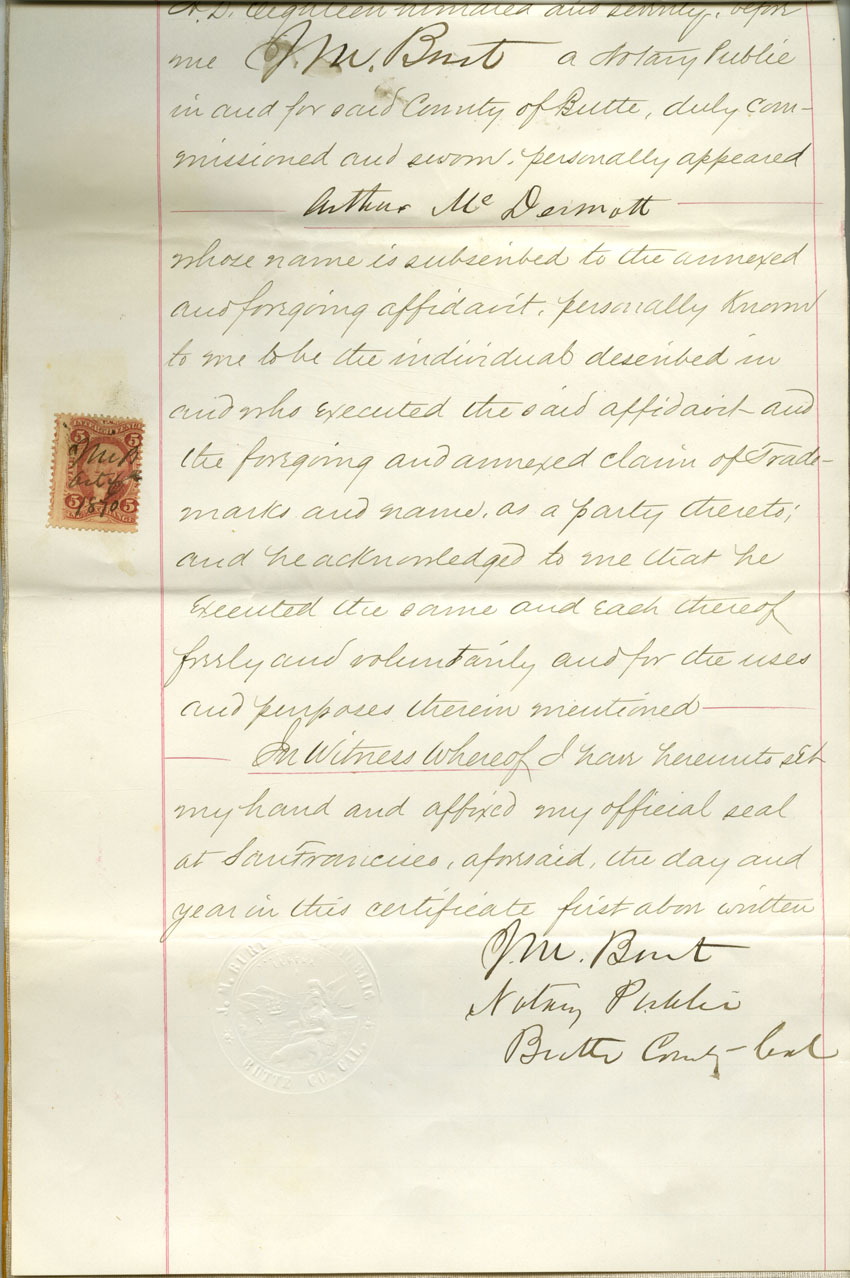 A. D. Eighteen hundred and seventy, before
me J. M. Burt a Notary Public
in and for said County of Butte, duly com-
missioned and sworn, personally appeared
Arthur Mc Dermott
whose name is subscribed to the annexed
and foregoing affidavit, personally known
to me to be the individual described in
and who executed the said affidavit and
the foregoing and annexed claim of Trade-
marks and name, as a party thereto;
and he acknowledged to me that he
executed the same and each thereof
freely and voluntarily and for the uses
and purposes therein mentioned
In Witness Whereof I have hereunto set
my hand and affixed my official seal
at San Francisco, aforsaid, the day and
year in this certificate first above written
J. M. Burt
Notary Public
Butte County Cal
5 5
J M B
1870
5 5
J. M. BURT
BUTTE CO. CAL.